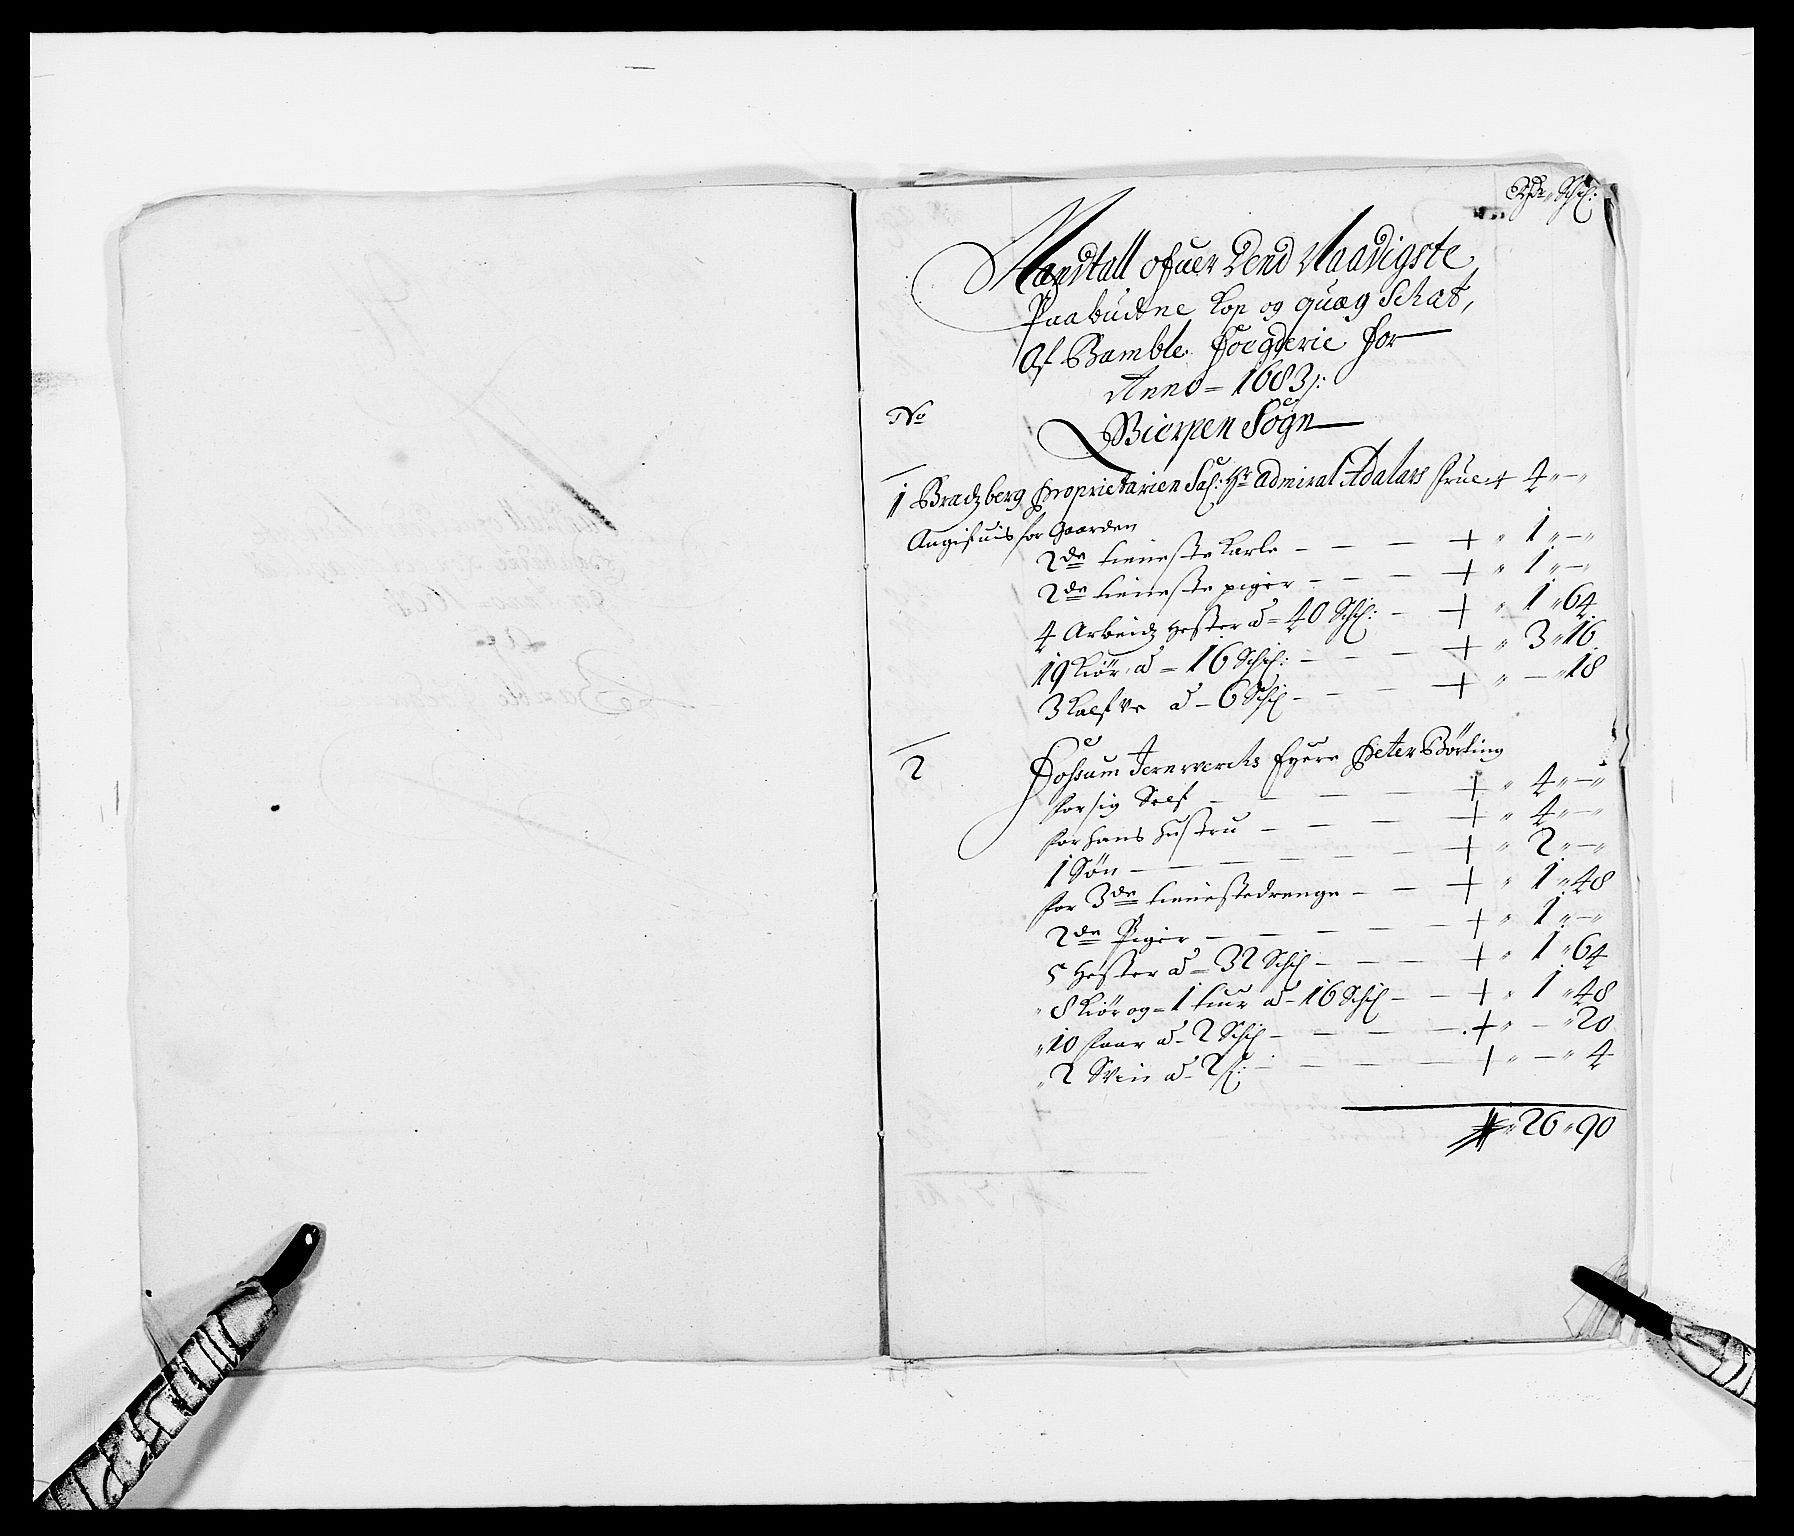 Rdr Schl:
Mandtall ofuer Dend Naadigste
Paabudne Kop og quæg Schat,
Af Bamble Foegderie for
Anno = 1683:
No
Bierpen Sogn
1 Bradzberg Proprietarien Sal: Hr Admiral Adalars frue + 4 " — "
Angifuis for Gaarden
2de tieneste Karle — — — + " 1 " — "
2de tieneste piger — — — + " 1 " — "
4 Arbeidz Hester a = 40 Schl: — + " 1 " 64
19 Kiør, a = 16 Schl: — — — + " 3 " 16
3 Kalfve a — 6 Schl — — — + " — " 18
2 Fossum Jernvercks Eyere Peter Børting
for sig Self — — — + " 4 " — "
for hans hustru — — — + " 4 " — "
1 Søn — — — — — + " 2 " — "
for 3de tienestedrenge — — + " 1 " 48
2de Piger — — — — — + " 1 " — "
5 Hester a = 32 Schl — — — + " 1 " 64
" 8 Kiør og = 1 tiur a — 16 Schl — — + " 1 " 48
" 10 faar a — 2 Schl — — — — + " — " 20
" 2 Svin a — 2 s: — — — — + " — " 4
" 26 " 90